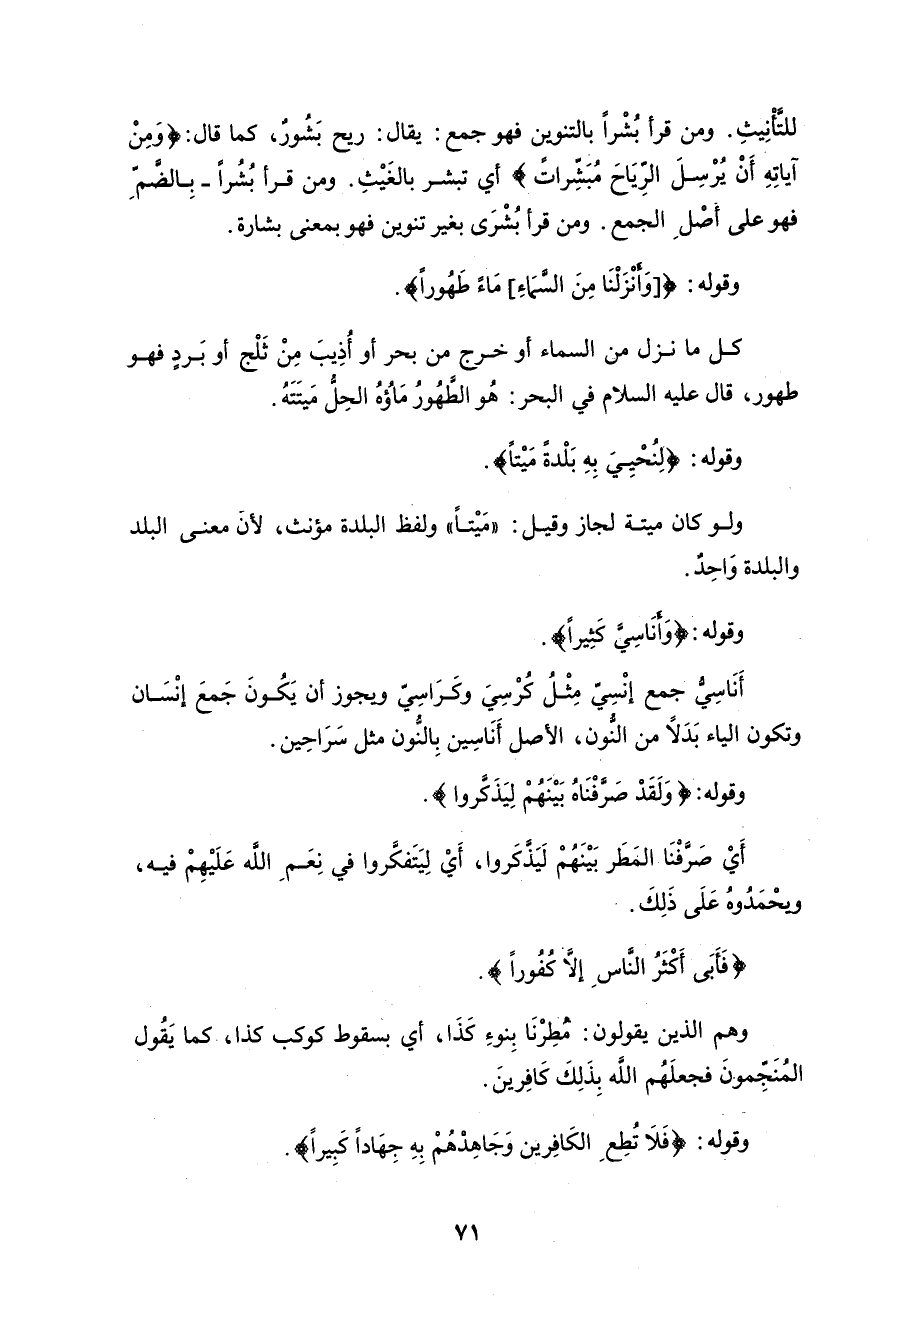 للتَّأْنِيثِ. ومن قرأ بُشْراً بالتنوين فهو جمع: يقال: ريح بَشُورٌ، كما قال:﴿وَمِنْ
آياتِهِ أَنْ يُرْسِلَ الرِّيَاحَ مُبَشِّراتً ﴾ أي تبشر بالغَيْثِ. ومن قرأ بُشُراً ـ بِالضَّمِّ
فهو على أَصْلِ الجمع. ومن قرأ بُشْرَى بغير تنوين فهو بمعنى بشارة.
وقوله: ﴿[وَأَنْزَلْنَا مِنَ السَّمَاءِ] مَاءً طَهُوراً﴾.
كل ما نزل من السماء أو خرج من بحر أو أُذِيبَ مِنْ ثَلْج أو بَردٍ فهو
طهور، قال عليه السلام في البحر: هُو الطَّهُورُ مَاؤُهُ الحِلُّ مَيتَتَهُ.
وقوله: ﴿لِنُحْيِيَ بِهِ بَلْدةً مَيْتاً﴾.
ولو كان ميتة لجاز وقيل: «مَيْتاً» ولفظ البلدة مؤنث، لأنَ معنى البلد
والبلدة وَاحِدٌ.
وقوله:﴿وَأَنَاسِيَّ كَثِيراً﴾.
أَنَاسِيُّ جمع إنْسِيّ مِثْلُ كُرْسِيَ وكَرَاسِيّ ويجوز أن يَكُونَ جَمعَ إنْسَان
وتكون الياء بَدَلاً من النُّون، الأصل أَنَاسِين بِالنُّون مثل سَرَاحِين.
وقوله:﴿ وَلَقَدْ صَرَّفْنَاهُ بَيْنَهُمْ لِيَذَكَّروا ﴾.
أَيْ صَرَّفْنَا المَطَر بَيْنَهُمْ لَيَذَّكَروا، أَيْ لِيَتَفكَّروا في نِعَمِ اللَّه عَلَيْهِمْ فيه،
ويحْمَدُوهُ عَلَى ذَلِكَ.
﴿فَأَبَى أَكْثَرُ النَّاسِ إلاَّ كُفُوراً ﴾.
وهم الذين يقولون: مُطِرْنَا بِنوءِ كَذَا، أي بسقوط كوكب كذا، كما يَقُول
المُنَجِّمونَ فجعلَهُم اللَّه بِذَلِكَ كَافِرينَ.
وقوله: ﴿فَلَا تُطِعِ الكَافِرين وَجَاهِدْهُمْ بِهِ جِهَاداً كَبِيراً﴾.
٧١